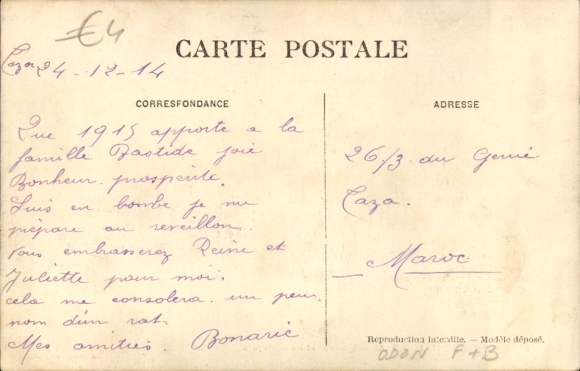 €4
CARTE POSTALE
Taza 24-12-14
CORRESPONDANCE
Que 1915 apporte a la
famille Bastide joie
Bonheur prosperite.
Suis en bombe je me
prépare au reveillon.
Vous embrasserez Reine et
Juliette pour moi.
cela me consolera un peu.
nom d'un rat.
Mes amitiés. Bonaric
ADRESSE
26/3 du Genié
Taza.
Maroc
Reproduction interdite. — Modèle déposé.
ODON F+B